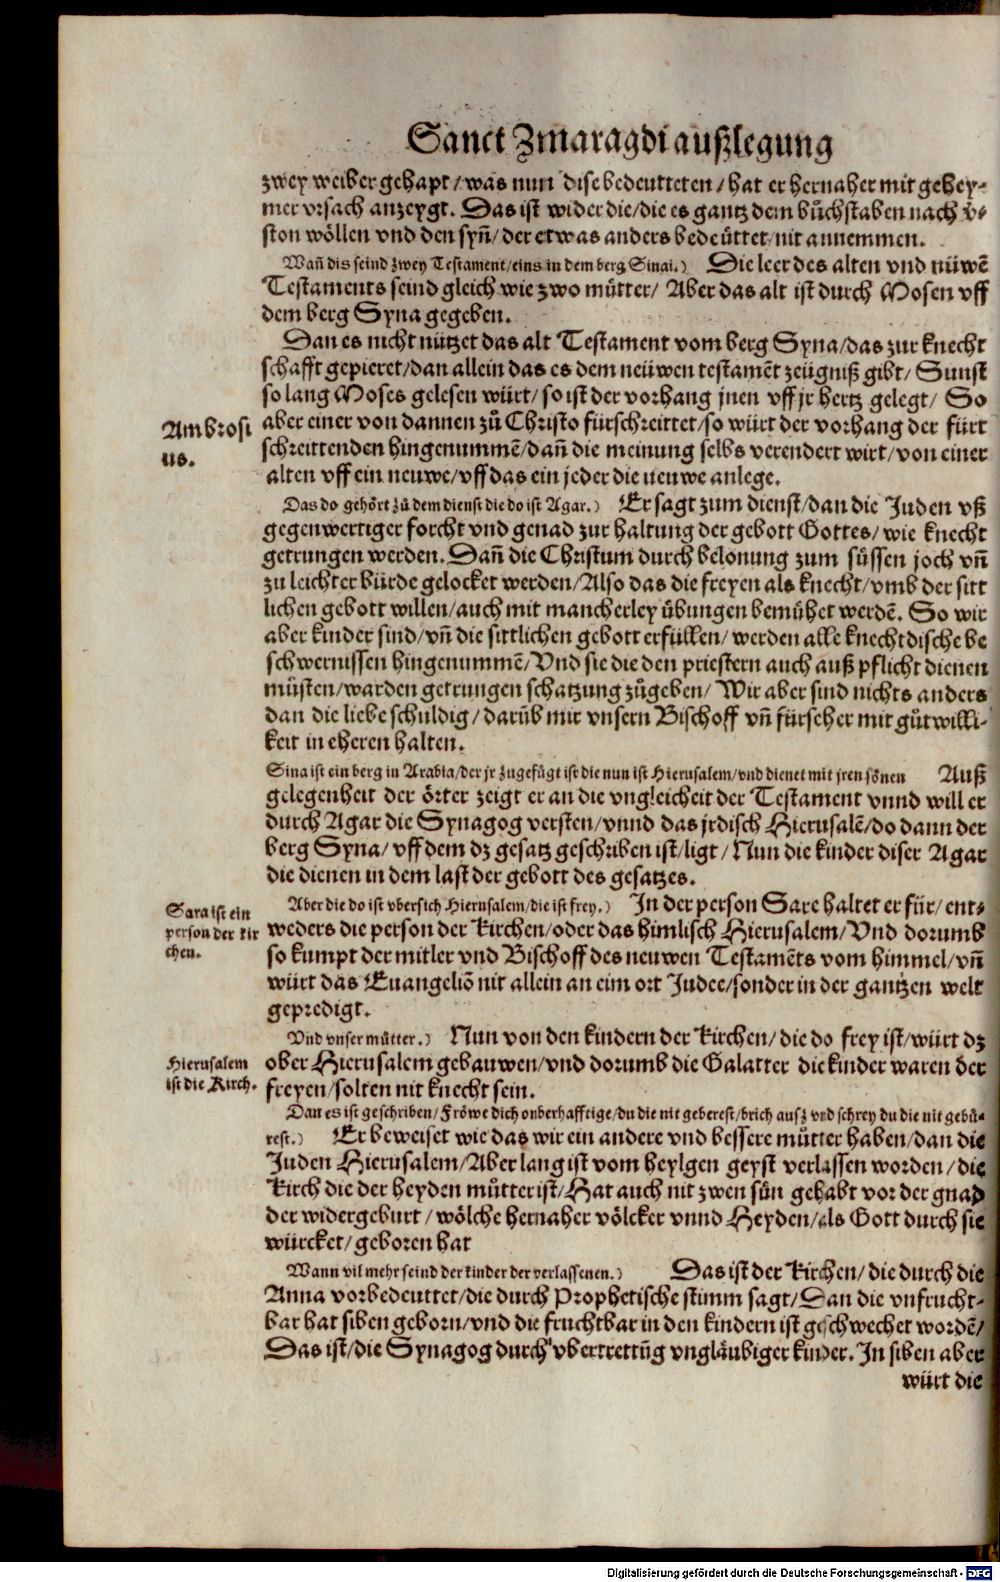 Sanct Zmaragdi außlegung
zwey weiber gehapt / was nun dise bedeutteten / hat er hernaher mit gehey-
mer vrsach anzeygt. Das ist wider die / die es gantz dem bůchstaben nach
ston wöllen vnd den syñ / der etwas anders bedeüttet / nit annemmen.
Wañ dis seind zwey Testament / eins in dem berg Sinai.) Die leer des alten vnd nüwẽ
Testaments seind gleich wie zwo mütter / Aber das alt ist durch Mosen vff
dem berg Syna gegeben.
Dan es nicht nützet das alt Testament vom berg Syna / das zur knecht
schafft gepieret / dan allein das es dem neüwen testamẽt zeügniß gibt / Sunst
so lang Moses gelesen würt / so ist der vorhang jnen vff jr hertz gelegt / So
Ambrosi
us.
aber einer von dannen zů Christo fürschreittet / so würt der vorhang der fürt
schreittenden hingenummẽ / dañ die meinung selbs verendert wirt / von einer
alten vff ein neuwe / vff das ein jeder die neuwe anlege.
Das do gehört zů dem dienst die do ist Agar.) Er sagt zum dienst / dan die Juden vß
gegenwertiger forcht vnd genad zur haltung der gebott Gottes / wie knecht
getrungen werden. Dañ die Christum durch belonung zum süssen joch vñ
zu leichter bürde gelocket werden / Also das die freyen als knecht / vmb der sitt
lichen gebott willen / auch mit mancherley übungen bemühet werdẽ. So wir
aber kinder sind / vñ die sittlichen gebott erfüllen / werden alle knechtdische be
schwernissen hingenummẽ / Vnd sie die den priestern auch auß pflicht dienen
müsten / warden getrungen schatzung zůgeben / Wir aber sind nichts anders
dan die liebe schuldig / darůb mir vnsern Bischoff vñ fürseher mit gůtwilli-
keit in eheren halten.
Sina ist ein berg in Arabia / der jr zugefügt ist die nun ist Hierusalem / vnd dienet mit jren sönen Auß
gelegenheit der örter zeigt er an die vngleicheit der Testament vnnd will er
durch Agar die Synagog versten / vnnd das jrdisch Hierusalẽ / do dann der
berg Syna / vff dem dz gesatz geschriben ist / ligt / Nun die kinder diser Agar
die dienen in dem last der gebott des gesatzes.
Sara ist ein
person der kir
chen.
Aber die do ist vbersich Hierusalem / die ist frey.) In der person Sare haltet er für / ent-
weders die person der Kirchen / oder das himlisch Hierusalem / Vnd dorumb
so kumpt der mitler vnd Bischoff des neuwen Testamẽts vom himmel / vñ
würt das Euangeliõ nit allein an eim ort Judee / sonder in der gantzen welt
gepredigt.
Vnd vnser můtter.) Nun von den kindern der Kirchen / die do frey ist / würt dz
Hierusalem
ist die Kirch.
ober Hierusalem gebauwen / vnd dorumb die Galatter die kinder waren der
freyen / solten nit knecht sein.
Dan es ist geschriben / Fröwe dich onberhafftige / du die nit geberest / brich ausz vnd schrey du die nit gebü-
rest.) Er beweiset wie das wir ein andere vnd bessere můtter haben / dan die
Juden Hierusalem / Aber lang ist vom heylgen geyst verlassen worden / die
Kirch die der heyden můtter ist / Hat auch nit zwen sün gehabt vor der gnad
der widergeburt / wölche hernaher völcker vnnd Heyden / als Gott durch sie
würcket / geboren hat
Wann vil mehr seind der kinder der verlassenen.) Das ist der Kirchen / die durch die
Anna vorbedeuttet / die durch Prophetische stimm sagt / Dan die vnfrucht-
bar hat siben geborn / vnd die fruchtbar in den kindern ist geschwechet wordẽ /
Das ist / die Synagog durch vbertrettũg vngläubiger kinder. In siben aber
würt die
Digitalisierung gefördert durch die Deutsche Forschungsgemeinschaft - DFG